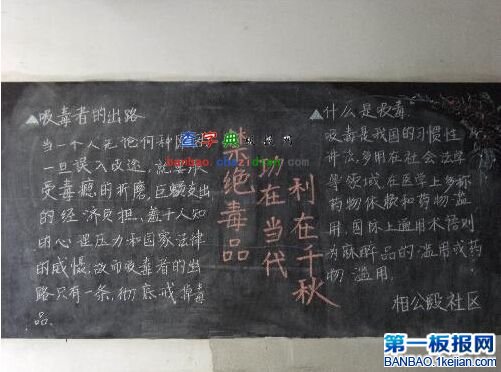 吸毒者的出路
当一个人无论何种
一旦误入歧途,就要承
受毒瘾的折磨,巨额支出
的经济负担,羞于人知
的心里压力和国家法律
的威慑,故而吸毒者的出
路只有一条,彻底戒掉毒
品.
禁绝毒品
功在当代
利在千秋
什么是吸毒
吸毒是我国的习惯性
讲法,多用在社会法学
等领域,在医学上多称
药物依赖和药物滥
用,国际上通用术语则
为麻醉品的滥用或药
物滥用.
相公殿社区
查字典
banbao.chazidian.com
第一板报网
BANBAO.1kejian.com